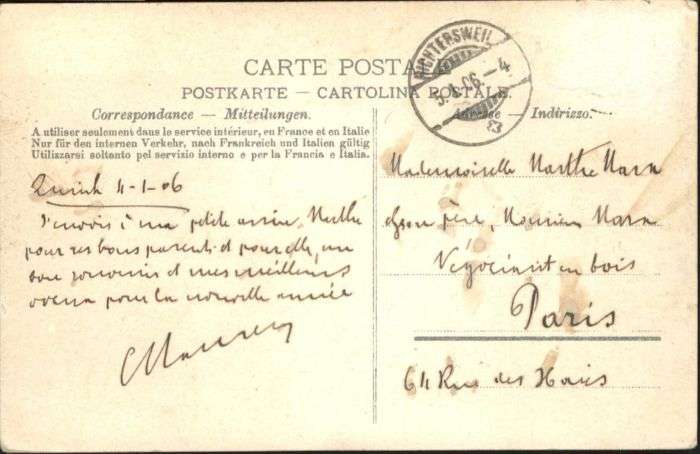 CARTE POSTA
POSTKARTE — CARTOLINA POSTALE.
Correspondance — Mitteilungen.
A utiliser seulement dans le service intérieur, en France et en Italie
Nur für den internen Verkehr, nach Frankreich und Italien gültig
Utilizzarsi soltanto pel servizio interno e per la Francia e Italia.
Adresse — Indirizzo.
RICHTERSWEIL
5.1.06.-4
Zurich 4-1-06
J'envois à ma petite amie, Marthe
pour ses bons parents et pour elle, un
bon souvenir et mes meilleurs
voeux pour la nouvelle année
Mademoiselle Marthe
père, Monsieur
Négociant en bois
Paris
64 Rue des Haies